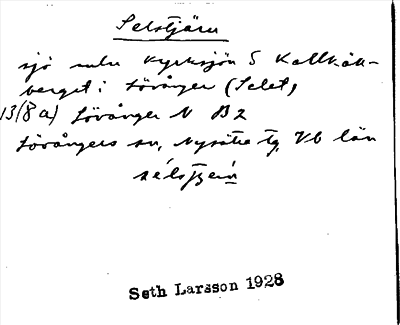 Selstjärn
sjö nedre Kyrksjön S Kallkäls-
berget i Lövånger (Selet,
13/8 a) Lövånger N B2
Lövångers sn, Nysätra tg, Vb län
sélstjærn
Seth Larsson 1928